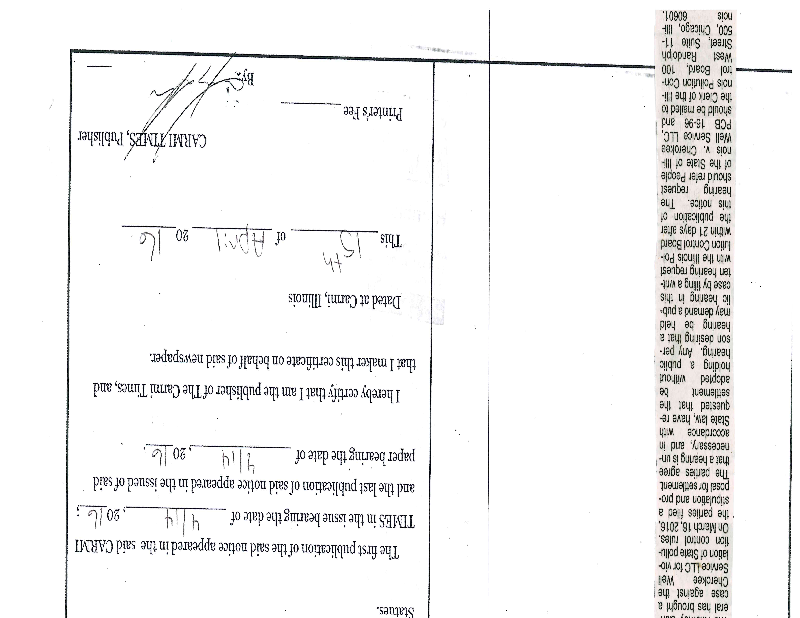 eral has brought a
case against the
Cherokee Well
Service LLC for vio-
lation of State pollu-
tion control rules.
On March 16, 2016,
the parties filed a
stipulation and pro-
posal for settlement.
The parties agree
that a hearing is un-
necessary, and in
accordance with
State law, have re-
quested that the
settlement be
adopted without
holding a public
hearing. Any per-
son desiring that a
hearing be held
may demand a pub-
lic hearing in this
case by filing a writ-
ten hearing request
with the Illinois Pol-
lution Control Board
within 21 days after
the publication of
this notice. The
hearing request
should refer People
of the State of Illi-
nois v. Cherokee
Well Service LLC,
PCB 16-96 and
should be mailed to
the Clerk of the Illi-
nois Pollution Con-
trol Board, 100
West Randolph
Street, Suite 11-
500, Chicago, Illi-
nois 60601.
Statues.
The first publication of the said notice appeared in the said CARMI
TIMES in the issue bearing the date of 4/14, 20 16;
and the last publication of said notice appeared in the issued of said
paper bearing the date of 4/14, 20 16.
I hereby certify that I am the publisher of The Carmi Times, and
that I maker this certificate on behalf of said newspaper.
Dated at Carmi, Illinois
This 15th of April 20 16
CARMI TIMES, Publisher
Printer's Fee
By: